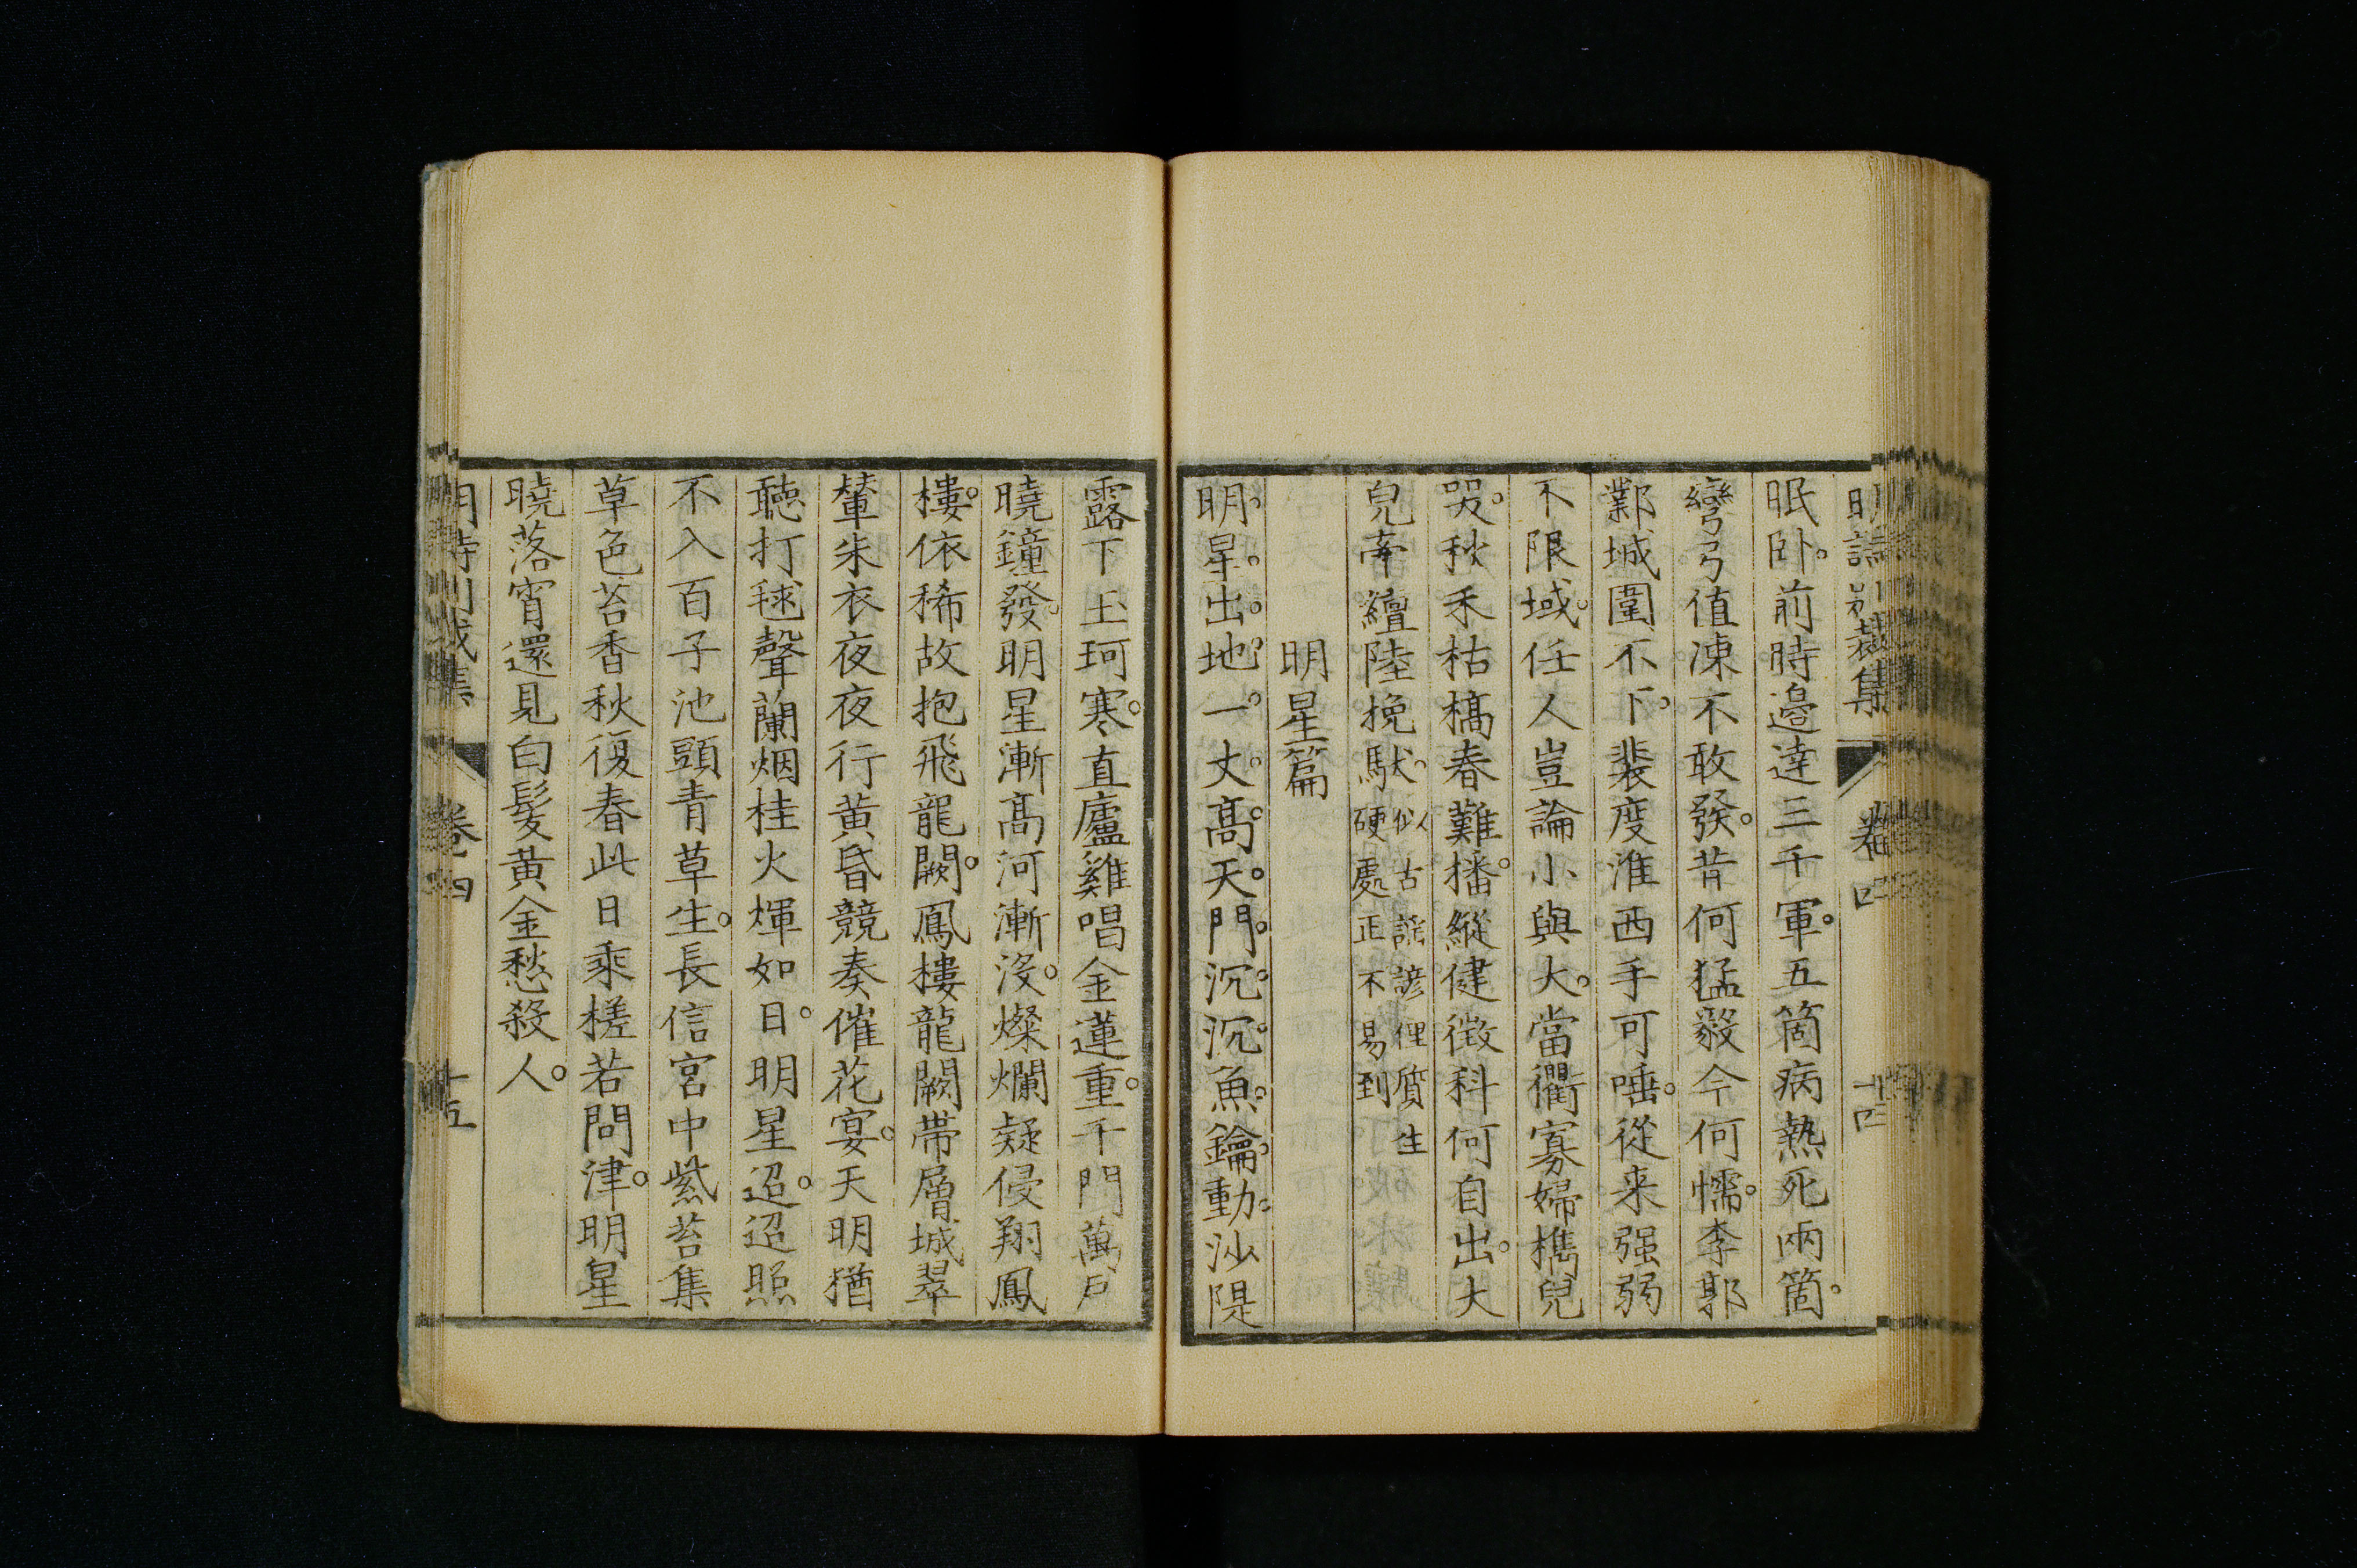 明詩別裁集 卷四 十四
眠卧。前時邉逹三千軍。五箇病熱死兩箇。
彎弓値凍不敢發。昔何猛毅今何懦。李郭
鄴城圍不下。裴度淮西手可唾。從来强弱
不限域。任人豈論小與大。當衢寡婦㩦兒
哭。秋禾枯槁春難播。縱健徴科何自出。大
兒牽纜陸挽馱。似古謡諺俚質生
硬處正不易到
明星篇
明。星。出。地。一。丈。高。天。門。沉。沉。魚。鑰。動。沙隄
露下玉珂寒。直廬雞唱金蓮重。千門萬戸
曉鐘發。明星漸高河漸没。燦爛疑侵翔鳳
樓。依稀故抱飛龍闕。鳳樓龍闕帶層城翠
輦朱衣夜夜行黄昏競奏催花宴。天明猶
聽打毬聲蘭烟桂火煇如日。明星迢。迢照
不入百子池頭青草生。長信宮中紫苔集
草色苔香秋復春此日乘槎若問津。明星
曉落宵還見白髮黄金愁殺人。
明詩別裁集 卷四 十五